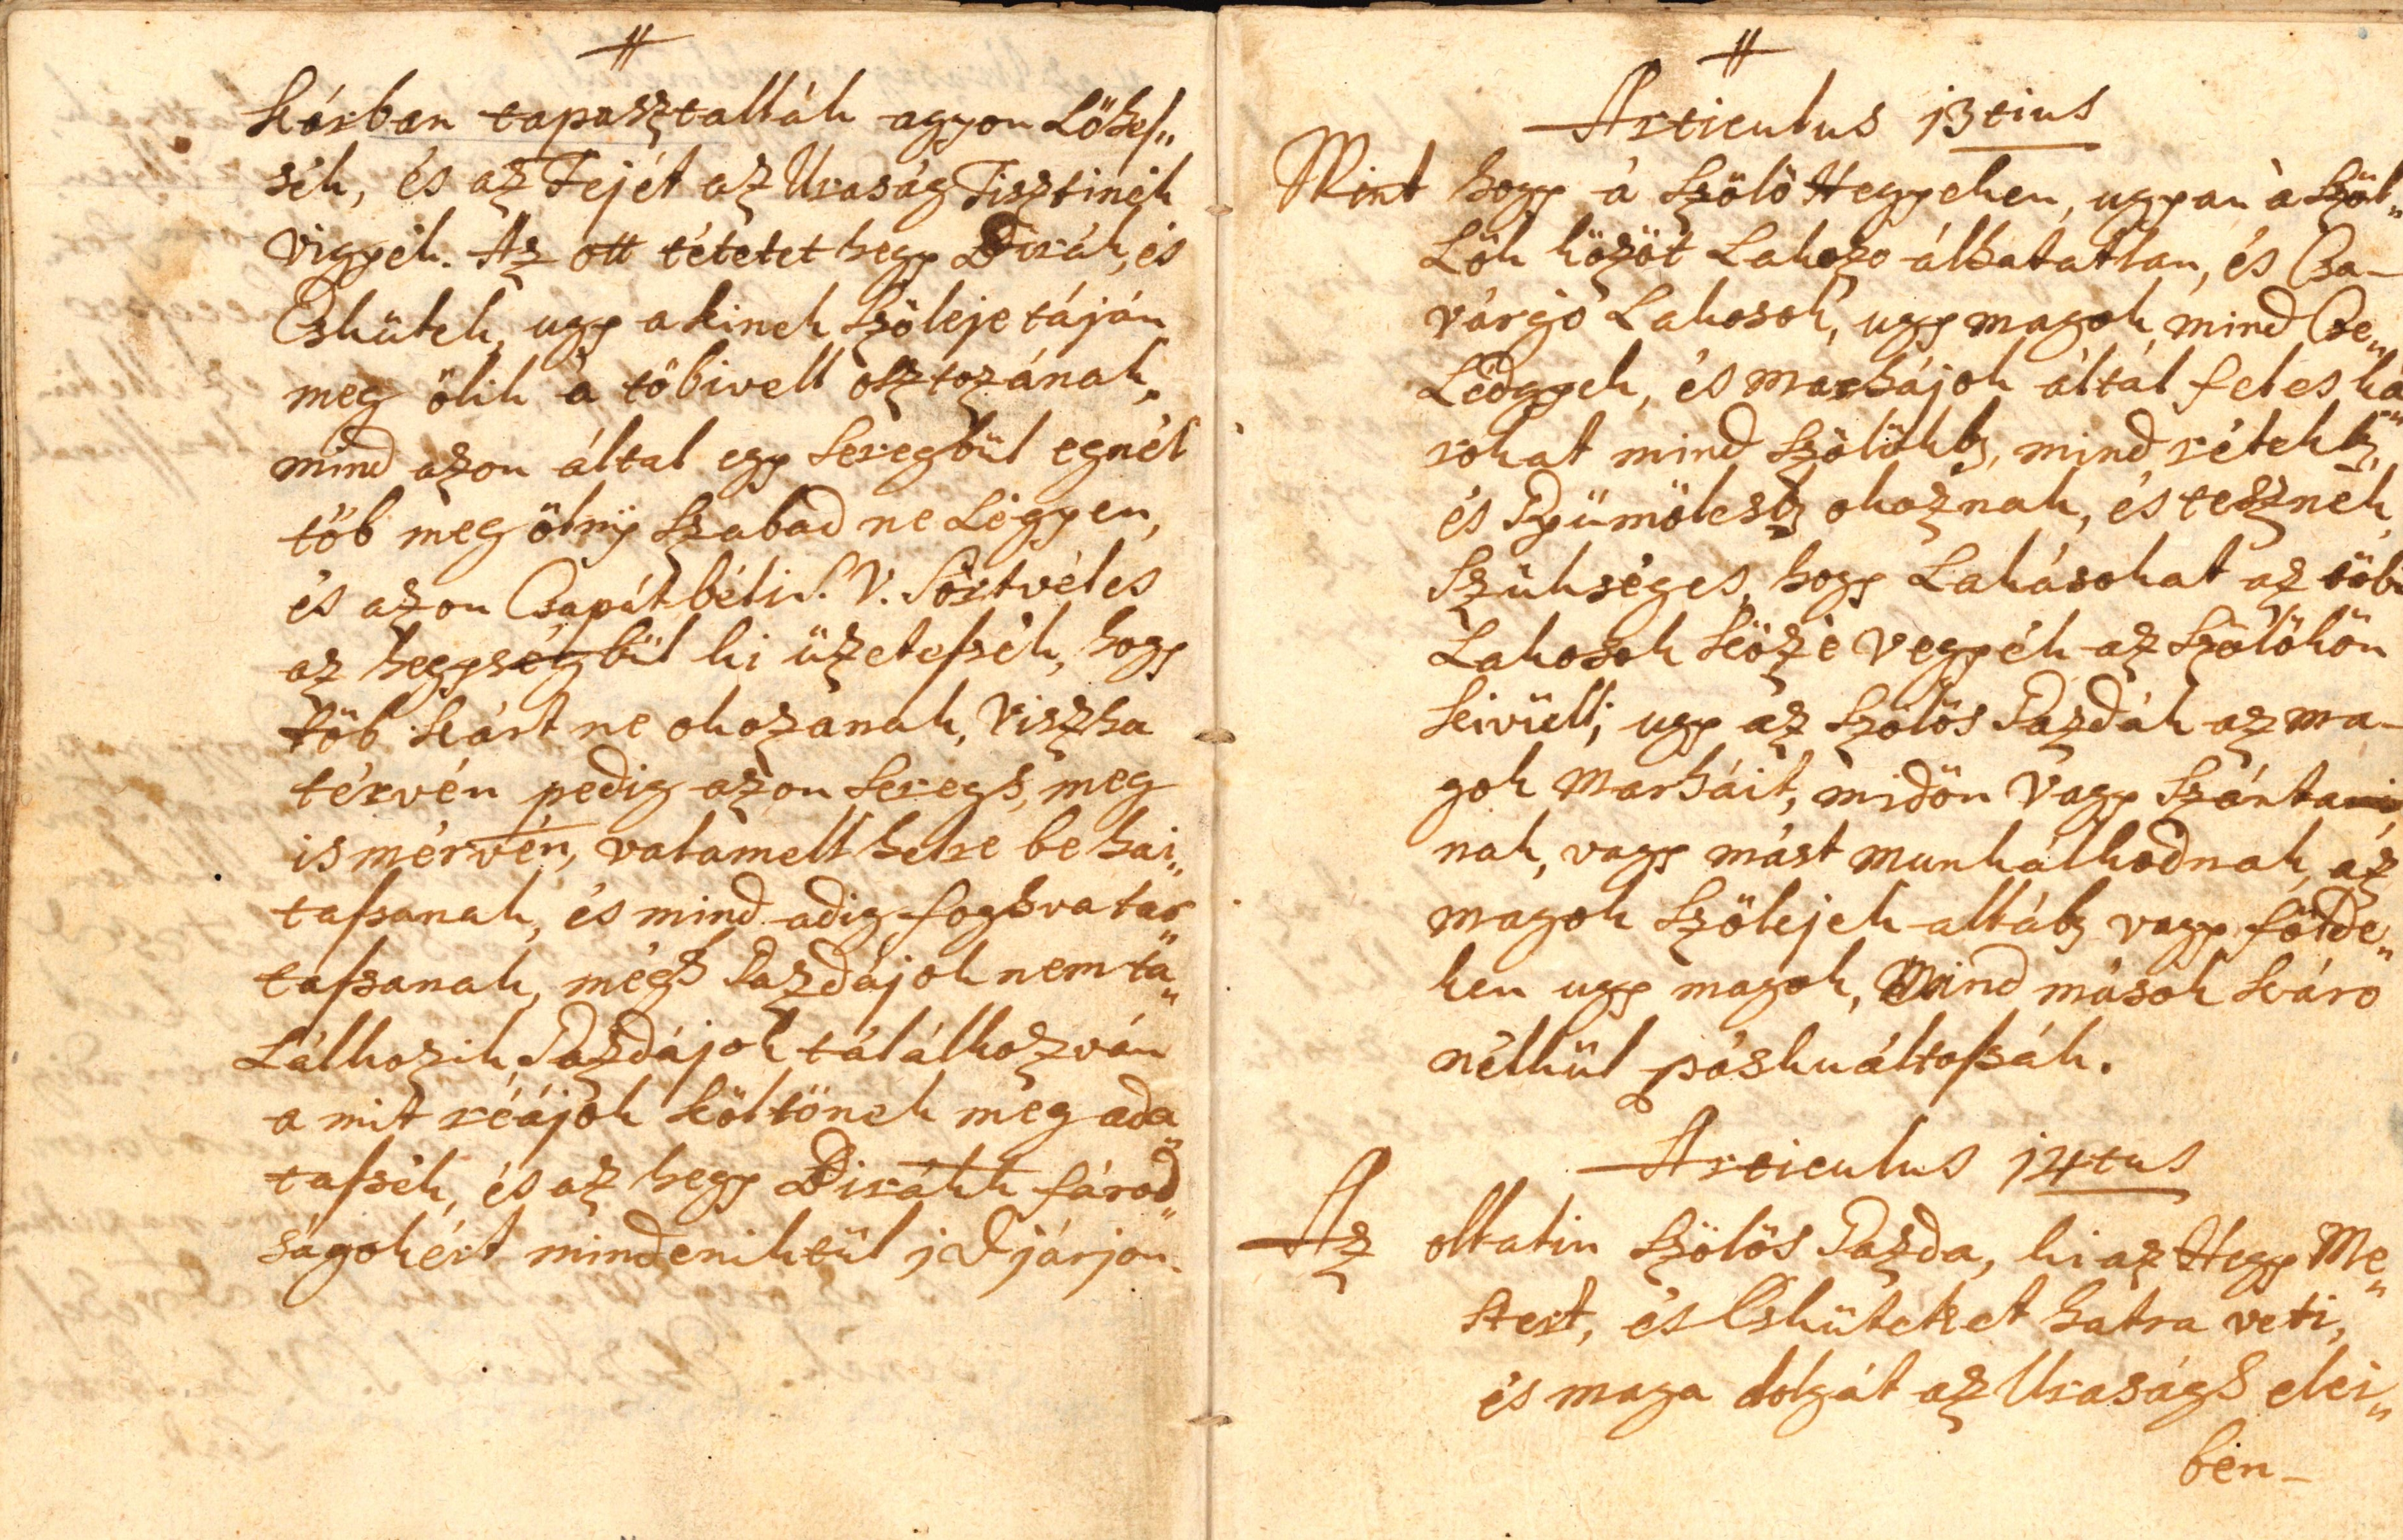 #
kárban tapasztallák agyon Löhes„
sék, és az Fejét az Uraság Tisztinek
vigyék. Az ott tétetet hegy Birák, és
Eskütek, ugy a kinek Szöleje táján
meg ölik a töbivell osztozának,
mind azon által egy Seregbül egnél
töb meg ölnÿ Szabad ne Légyen,
és azon Csapát béli S. V. Sörtvéles
az hegységbül ki üzetessék, hogy
töb kárt ne okozanak, viszha
térvén pedig azon Sereg s, meg
ismérvén, valamell helre be hai„
tassanak, és mind adig fogsva tar„
tassanak, még s Gazdájok nem ta„
Lálkozik, Gazdájok tálálkozván
a mit réájok költönek meg ada„
tassék, és az hegy Birákk fárod„
ságokért mindeniktül j d járjon.
#
Articulus 13tius
Mint hogy á Szölö Hegyeken, ugyan á Szöl„
Lök között Lakozo álhatatlan, és Csa-
várgó Lakosok, ugy magok, mind Cse„
Lédgyek, és marhájok által feles ká„
rokat mind Szölökb, mind rétekb,
és Gyümölcsb okoznak, és tesznek,
Szükséges, hogy Lakásokat az töbi
Lakosok közé vegyék az Szölökön
kivüll; ugy az Szölös Gazdák az ma-
gok Marháit, midön vagy Szánta
nak, vagy mást munkálkodnak, az
magok Szölejek allább vagy földe„
ken ugy magok, Mind mások káro
nélkül páskuáltassák.
Articulus 14tus
Az ollatin Szölös Gazda, ki az Hegy Me„
stert, és Esküteket hátra veti,
és maga dolgát az Uraság s elei„
ben-